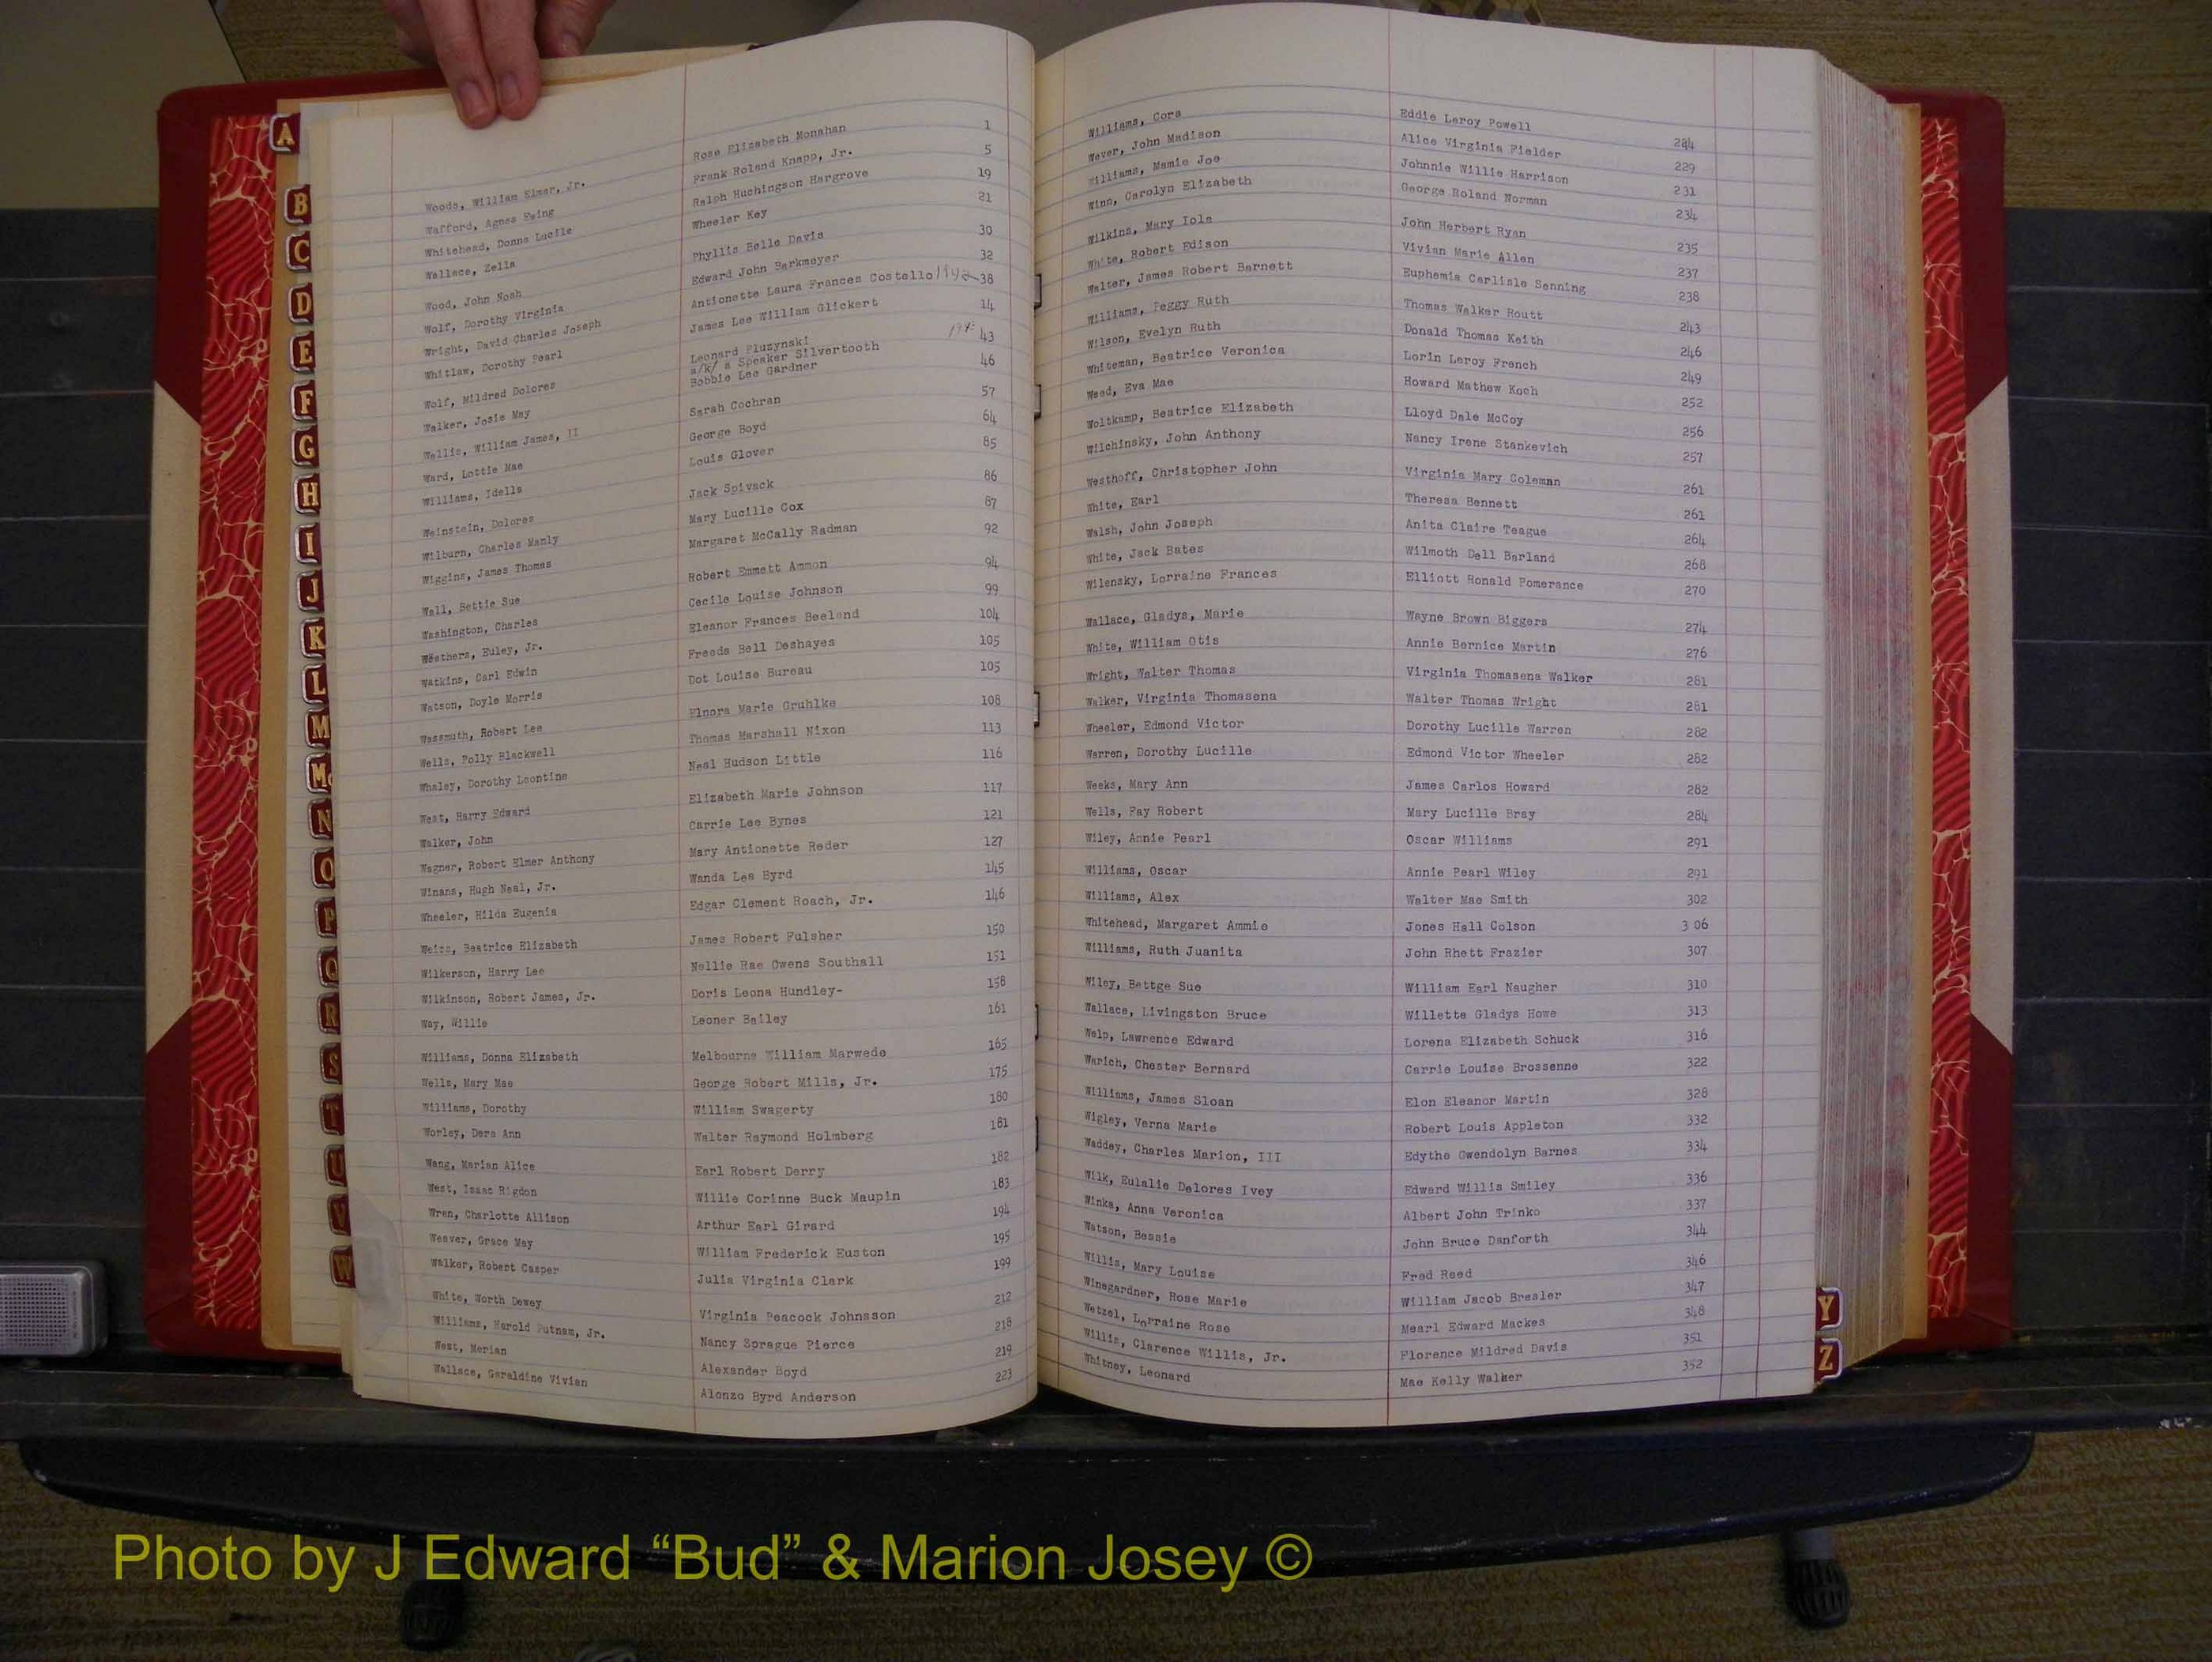 A
B
C
D
E
F
G
H
I
J
K
L
M
Mc
N
O
P
Q
R
S
T
U
V
W
Woods, William Elmer, Jr. Rose Elizabeth Monahan 1
Wafford, Agnes Ewing Frank Roland Knapp, Jr. 5
Whitehead, Donna Lucile Ralph Huchingson Hargrove 19
Wallace, Zella Wheeler Key 21
Wood, John Noah Phyllis Belle Davis 30
Wolf, Dorothy Virginia Edward John Barkmeyer 32
Wright, David Charles Joseph Antionette Laura Frances Costello 1942 38
Whitlaw, Dorothy Pearl James Lee William Glickert 14
Wolf, Mildred Dolores Leonard Pluzynski 43
a/k/ a Speaker Silvertooth
Walker, Josie May Bobbie Lee Gardner 46
Wallis, William James, II Sarah Cochran 57
Ward, Lottie Mae George Boyd 64
Williams, Idella Louis Glover 85
Weinstein, Dolores Jack Spivack 86
Wilburn, Charles Manly Mary Lucille Cox 87
Wiggins, James Thomas Margaret McCally Radman 92
Wall, Bettie Sue Robert Emmett Ammon 94
Washington, Charles Cecile Louise Johnson 99
Weathers, Euley, Jr. Eleanor Frances Beeland 104
Watkins, Carl Edwin Freeda Bell Deshayes 105
Watson, Doyle Morris Dot Louise Bureau 105
Wassmuth, Robert Lee Elnora Marie Gruhlke 108
Wells, Polly Blackwell Thomas Marshall Nixon 113
Whaley, Dorothy Leontine Neal Hudson Little 116
West, Harry Edward Elizabeth Marie Johnson 117
Walker, John Carrie Lee Bynes 121
Wagner, Robert Elmer Anthony Mary Antionette Reder 127
Winans, Hugh Neal, Jr. Wanda Lea Byrd 145
Wheeler, Hilda Eugenia Edgar Clement Roach, Jr. 146
Weiss, Beatrice Elizabeth James Robert Fulsher 150
Wilkerson, Harry Lee Nellie Rae Owens Southall 151
Wilkinson, Robert James, Jr. Doris Leona Hundley- 158
Way, Willie Leoner Bailey 161
Williams, Donna Elizabeth Melbourne William Marwede 165
Wells, Mary Mae George Robert Mills, Jr. 175
Williams, Dorothy William Swagerty 180
Worley, Dera Ann Walter Raymond Holmberg 181
Wang, Marian Alice Earl Robert Derry 182
West, Izaac Rigdon Willie Corinne Buck Maupin 183
Wren, Charlotte Allison Arthur Earl Girard 194
Weaver, Grace May William Frederick Euston 195
Walker, Robert Casper Julia Virginia Clark 199
White, Worth Dewey Virginia Peacock Johnsson 212
Williams, Harold Putnam, Jr. Nancy Sprague Pierce 218
West, Merian Alexander Boyd 219
Wallace, Geraldine Vivian Alonzo Byrd Anderson 223
Williams, Cora Eddie Leroy Powell 224
Wever, John Madison Alice Virginia Fielder 229
Williams, Mamie Joe Johnnie Willie Harrison 231
Winn, Carolyn Elizabeth George Roland Norman 234
Wilkins, Mary Iola John Herbert Ryan 235
White, Robert Edison Vivian Marie Allen 237
Walter, James Robert Barnett Euphemia Carlisle Senning 238
Williams, Peggy Ruth Thomas Walker Routt 243
Wilson, Evelyn Ruth Donald Thomas Keith 246
Whiteman, Beatrice Veronica Lorin Leroy French 249
Weed, Eva Mae Howard Mathew Koch 252
Woltkamp, Beatrice Elizabeth Lloyd Dale McCoy 256
Wilchinsky, John Anthony Nancy Irene Stankevich 257
Westhoff, Christopher John Virginia Mary Coleman 261
White, Earl Theresa Bennett 261
Walsh, John Joseph Anita Claire Teague 264
White, Jack Bates Wilmoth Dell Barland 268
Wilensky, Lorraine Frances Elliott Ronald Pomerance 270
Wallace, Gladys, Marie Wayne Brown Biggers 274
White, William Otis Annie Bernice Martin 276
Wright, Walter Thomas Virginia Thomasena Walker 281
Walker, Virginia Thomasena Walter Thomas Wright 281
Wheeler, Edmond Victor Dorothy Lucille Warren 282
Warren, Dorothy Lucille Edmond Victor Wheeler 282
Weeks, Mary Ann James Carlos Howard 282
Wells, Fay Robert Mary Lucille Bray 284
Wiley, Annie Pearl Oscar Williams 291
Williams, Oscar Annie Pearl Wiley 291
Williams, Alex Walter Mae Smith 302
Whitehead, Margaret Ammie Jones Hall Colson 3 06
Williams, Ruth Juanita John Rhett Frazier 307
Wiley, Bettge Sue William Earl Naugher 310
Wallace, Livingston Bruce Willette Gladys Howe 313
Welp, Lawrence Edward Lorena Elizabeth Schuck 316
Warich, Chester Bernard Carrie Louise Brossenne 322
Williams, James Sloan Elon Eleanor Martin 328
Wigley, Verna Marie Robert Louis Appleton 332
Wadday, Charles Marion, III Edythe Gwendolyn Barnes 334
Wilk, Eulalie Delores Ivey Edward Willis Smiley 336
Winka, Anna Veronica Albert John Trinko 337
Watson, Bessie John Bruce Danforth 344
Willis, Mary Louise Fred Reed 346
Winegardner, Rose Marie William Jacob Bresler 347
Wetzel, Lorraine Rose Mearl Edward Mackes 348
Willis, Clarence Willis, Jr. Florence Mildred Davis 351
Whitney, Leonard Mae Kelly Walker 352
Y
Z
Photo by J Edward “Bud” & Marion Josey ©